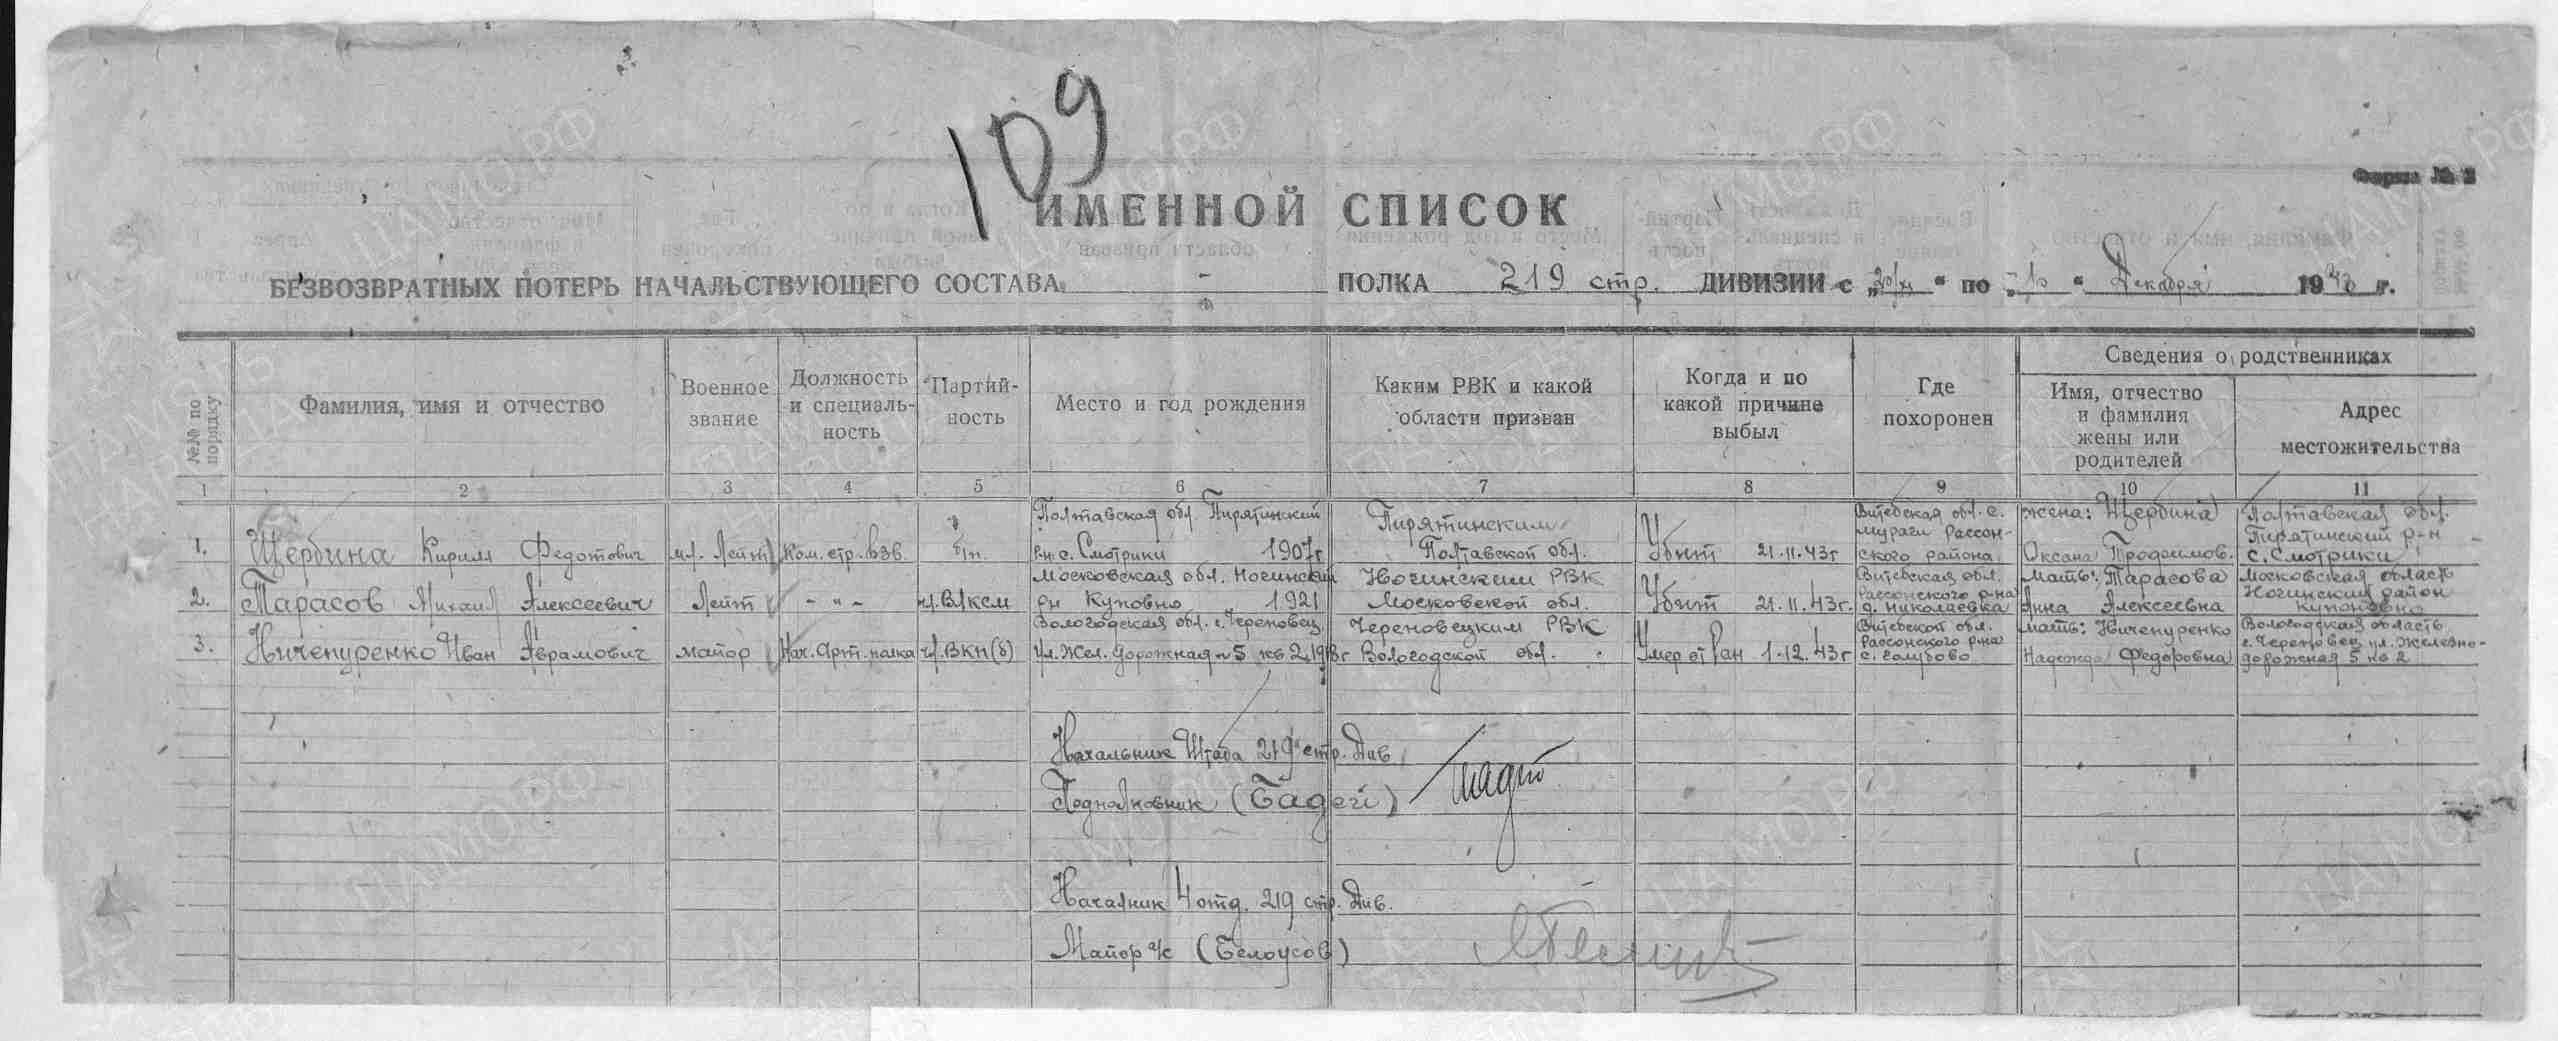 109
Форма № 2
ИМЕННОЙ СПИСОК
БЕЗВОЗВРАТНЫХ ПОТЕРЬ НАЧАЛЬСТВУЮЩЕГО СОСТАВА - ПОЛКА 219 стр. ДИВИЗИИ с „20/XI“ по „1“ Декабря 1943 г.
№№ по порядку
Фамилия, имя и отчество
Военное звание
Должность и специальность
Партийность
Место и год рождения
Каким РВК и какой области призван
Когда и по какой причине выбыл
Где похоронен
Сведения о родственниках
Имя, отчество и фамилия жены или родителей
Адрес местожительства
1 2 3 4 5 6 7 8 9 10 11
1. Щербина Кирилл Федотович мл. Лейт Ком. стр. взв. б/п. Полтавская обл. Пирятинский р-н с. Смотрики 1907г Пирятинским Полтавской обл. Убит 21.11.43г Витебская обл. с. Мураги Рассонского района жена: Щербина Оксана Трофимов. Полтавская обл. Пирятинский р-н с. Смотрики
2. Тарасов Михаил Алексеевич Лейт -"- чл. ВЛКСМ Московская обл. Ногинский рн Куповно 1921 Ногинским РВК Московской обл. Убит 21.11.43г. Витебская обл. Рассонского р-на д. Николаевка Мать: Тарасова Анна Алексеевна Московская область Ногинский район Куповно
3. Ничепуренко Иван Аврамович майор Нач. Арт. полка чл. ВКП(б) Вологодская обл. г. Череповец ул. Жел. дорожная 5 кв 2 1918г Череповецким РВК Вологодской обл. Умер от Ран 1.12.43г Витебской обл. Рассонского р-на с. Голубово мать: Ничепуренко Надежда Федоровна Вологодская область г. Череповец ул. Железнодорожная 5 кв 2
Начальник Штаба 219 стр. Див.
Подполковник (Бадеги)
Началник 4 отд. 219 стр. Див.
Майор а/с (Белоусов)